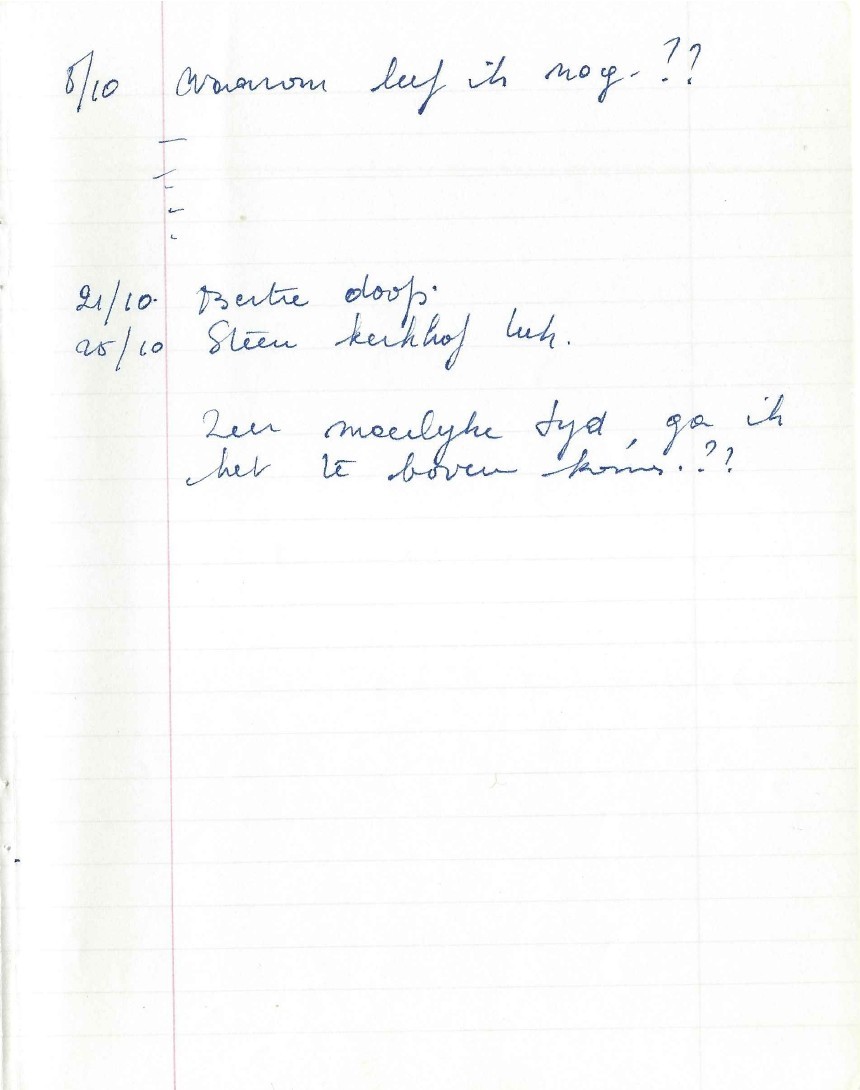 8/10 Waarom leef ik nog. ??
21/10. Bertie doop.
25/10 Steen kerkhof Luk.
Zeer moeilyke tyd, ga ik
het te boven komen. ??